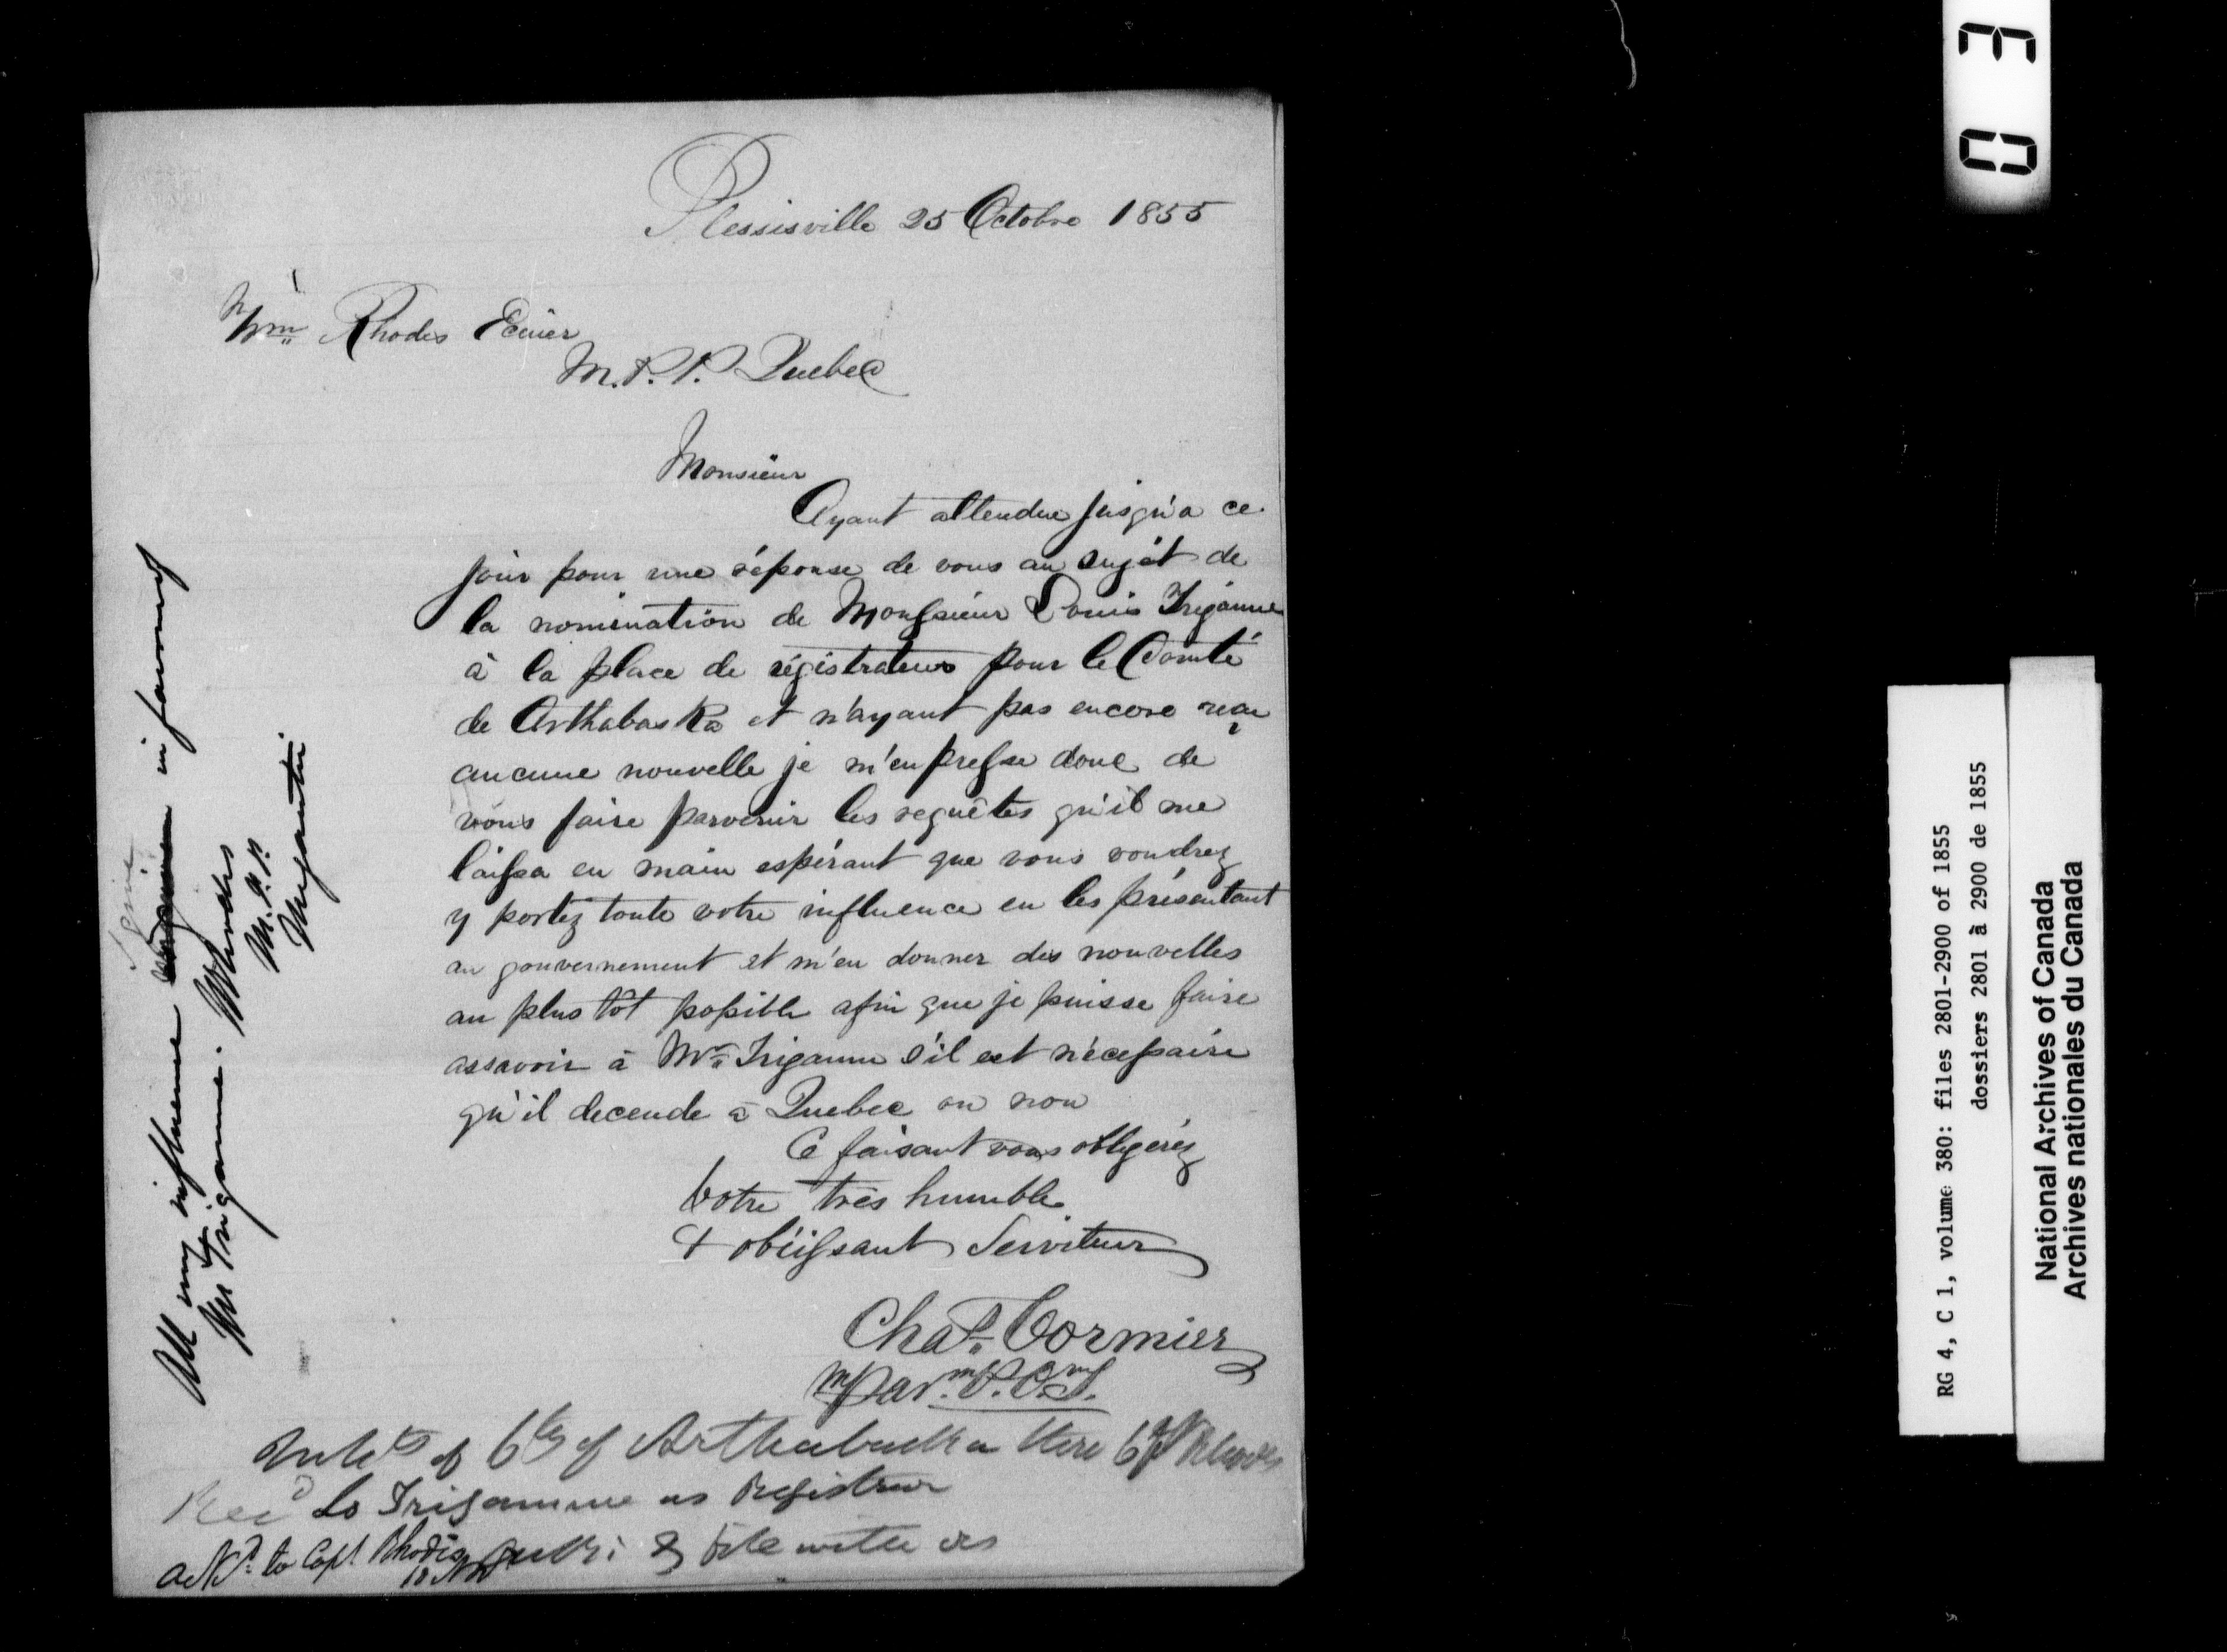 Plessisville 25 Octobre 1855
Wm Rhodes Ecuier
M.P.P. Quebec
Monsieur
Ayant attendue jusqu'a ce
jour pour une réponse de vous au sujèt de
la nomination de Monsieur Louis Triganne
à la place de régistrateur pour le Comté
de Arthabaska et n'ayant pas encore reçu
aucune nouvelle je m'enpresse donc de
vous faire parvenir les requêtes qu'il me
laissa en main espérant que vous voudrez
y portez toute votre influence en les présentant
au gouvernement et m'en donner des nouvelles
au plus tôt possible afin que je puisse faire
assavoir à Mr Triganne s'il est nécessaire
qu'il decende à Quebec ou non
Ce faisant vous obligeréz
Votre très humble
& obéissant Serviteur
Chas. Cormier
All my influence in favour of
Mr Triganne. WRhodes
M.P.P.
Megantic
of Arthabaska
Recd Ls Triganne as Registrar
Ack to Capt Rhodes
E O
RG 4, C 1, volume 380: files 2801-2900 of 1855
dossiers 2801 à 2900 de 1855
National Archives of Canada
Archives nationales du Canada